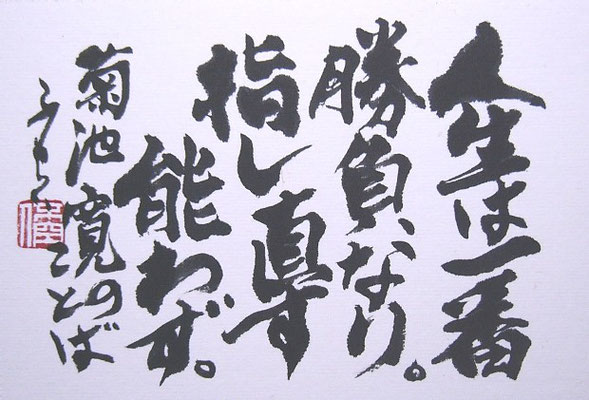 人生は一番
勝負なり。
指し直す
能わず。
菊池寛のことば